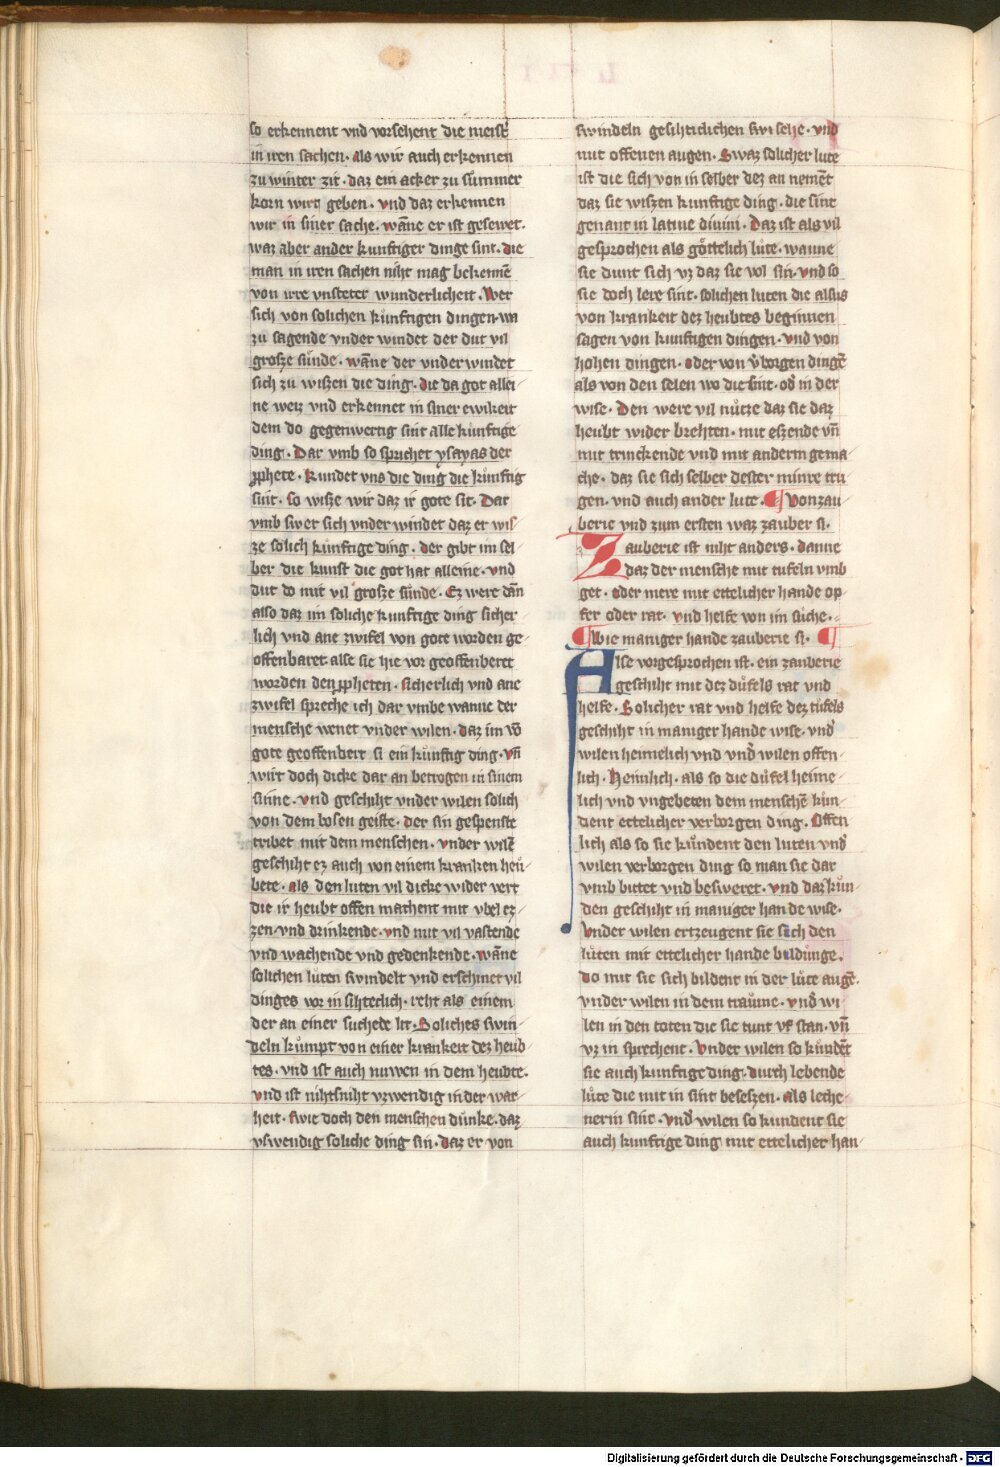 so erkennent vnd vorsehent die meist̾
in iren sachen. als wir auch erkennen
zu winter zit. daz ein acker zu summer
korn wirt geben. vnd daz erkennen
wir in siner sache. wāne er ist gesewet.
waz aber ander kunftiger dinge sint. die
man in iren sachen niht mag bekennē
von irre vnsteter wunderlicheit. Wer
sich von solichen kůnftigen dingen. wa
zu sagende vnder windet der dut vil
grosze sůnde. wāne der vnder windet
sich zu wiszen die ding. die da got allei
ne weiz vnd erkennet in siner ewikeit
dem do gegenwertig sint alle kůnftige
ding. Dar vmb so sprichet ysayas der
ꝓphete. Kundet vns die ding die kůnftig
sint. so wisze wir daz ir gote sit. Dar
vmb swer sich vnder windet daz er wis
ze solich kůnftige ding. der gibt im sel
ber die kunst die got hat alleine. vnd
dut do mit vil grosze sůnde. Ez were dān
also daz im soliche kunftige ding sicher
lich vnd ane zwifel von gote worden ge
offenbaret alse sie hie vor geoffenberet
worden den ꝓpheten. sicherlich vnd ane
zwifel spreche ich dar vmbe wanne der
mensche wenet vnder wilen. daz im vō
gote geoffenbert si ein kůnftig ding. vn̄
wirt doch dicke dar an betrogen in sinem
sinne. vnd geschiht vnder wilen solich
von dem bosen geiste. der sin gespenste
tribet mit dem menschen. vnder wilē
geschiht ez auch von einem kranken heů
bete. als den luten vil dicke wider vert
die ir heubt offen machent mit vbel ez
zen vnd drinkende. vnd mit vil vastende
vnd wachende vnd gedenkende. wāne
solichen luten swindelt vnd erschinet vil
dinges vor in sihteclich. reht als einem
der an einer suchede lit. Soliches swin
deln kůmpt von einer krankeit dez heub
tes. vnd ist auch nuwen in dem heubte.
vnd ist nihtsniht vzwendig in der war
heit. swie doch den menschen dunke. daz
vswendig soliche ding sin. daz er von
swindeln gesihticlichen swi sehe. vnd
mit offenen augen. Swaz solicher lute
ist die sich von in selber dez an nemēt
daz sie wiszen kunftige ding. die sint
genant in latine diuini. Daz ist als vil
gesprochen als gőttelich lůte. wanne
sie dunt sich vz daz sie vol sin. vnd so
sie doch lere sint. solichen luten die alsus
von krankeit dez heubtes beginnen
sagen von kunftigen dingen. vnd von
hohen dingen. oder von v̾borgen dingē
als von den selen wo die sint. od̾ in der
wise. Den were vil nůtze daz sie daz
heubt wider brehten. mit eszende vn̄
mit trinckende vnd mit anderm gema
che. daz sie sich selber dester minre tru
gen. vnd auch ander lute. ¶ Von zau
berie vnd zum ersten waz zauber si.
Zauberie ist niht anders. danne
daz der mensche mit tufeln vmb
get. oder mere mit ettelicher hande op
fer oder rat. vnd helfe von im sůche.
¶ Wie maniger hande zauberie si. ¶
Alse vorgesprochen ist. ein zauberie
geschiht mit dez důfels rat vnd
helfe. Solicher rat vnd helfe dez tůfels
geschiht in maniger hande wise. vnd̾
wilen heimelich vnd vnd̾ wilen offen
lich. Heimlich. als so die důfel heime
lich vnd vngebeten dem menschē kůn
dent ettelicher verborgen ding. Offen
lich als so sie kůndent den luten vnd̾
wilen verborgen ding so man sie dar
vmb bittet vnd besweret. vnd daz kůn
den geschiht in maniger hande wise.
Vnder wilen ertzeugent sie sich den
lůten mit ettelicher hande bildunge.
Do mit sie sich bildent in der lůte augē.
vnder wilen in dem traůme. vnd̾ wi
len in den toten die sie tunt vf stan. vn̄
vz in sprechent. Vnder wilen so kůndēt
sie auch kunftige ding. durch lebende
lůte die mit in sint beseszen. als leche
nerin sint. vnd̾ wilen so kundent sie
auch kunftige ding mit ettelicher han
Digitalisierung gefördert durch die Deutsche Forschungsgemeinschaft - DFG